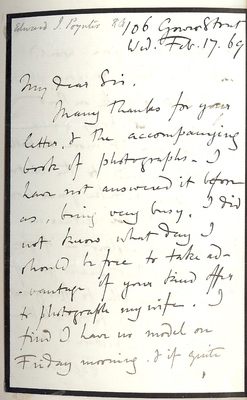 Edward J. Poynter R.A.
106 Gower Street
Wed. Feb. 17. 69
My dear Sir.
Many thanks for your
letter, & the accompanying
book of photographs - I
have not answered it before
as, being very busy, I did
not know what day I
should be free to take ad-
-vantage of your kind offer
to photograph my wife. I
find I have no model on
Friday morning. & if quite